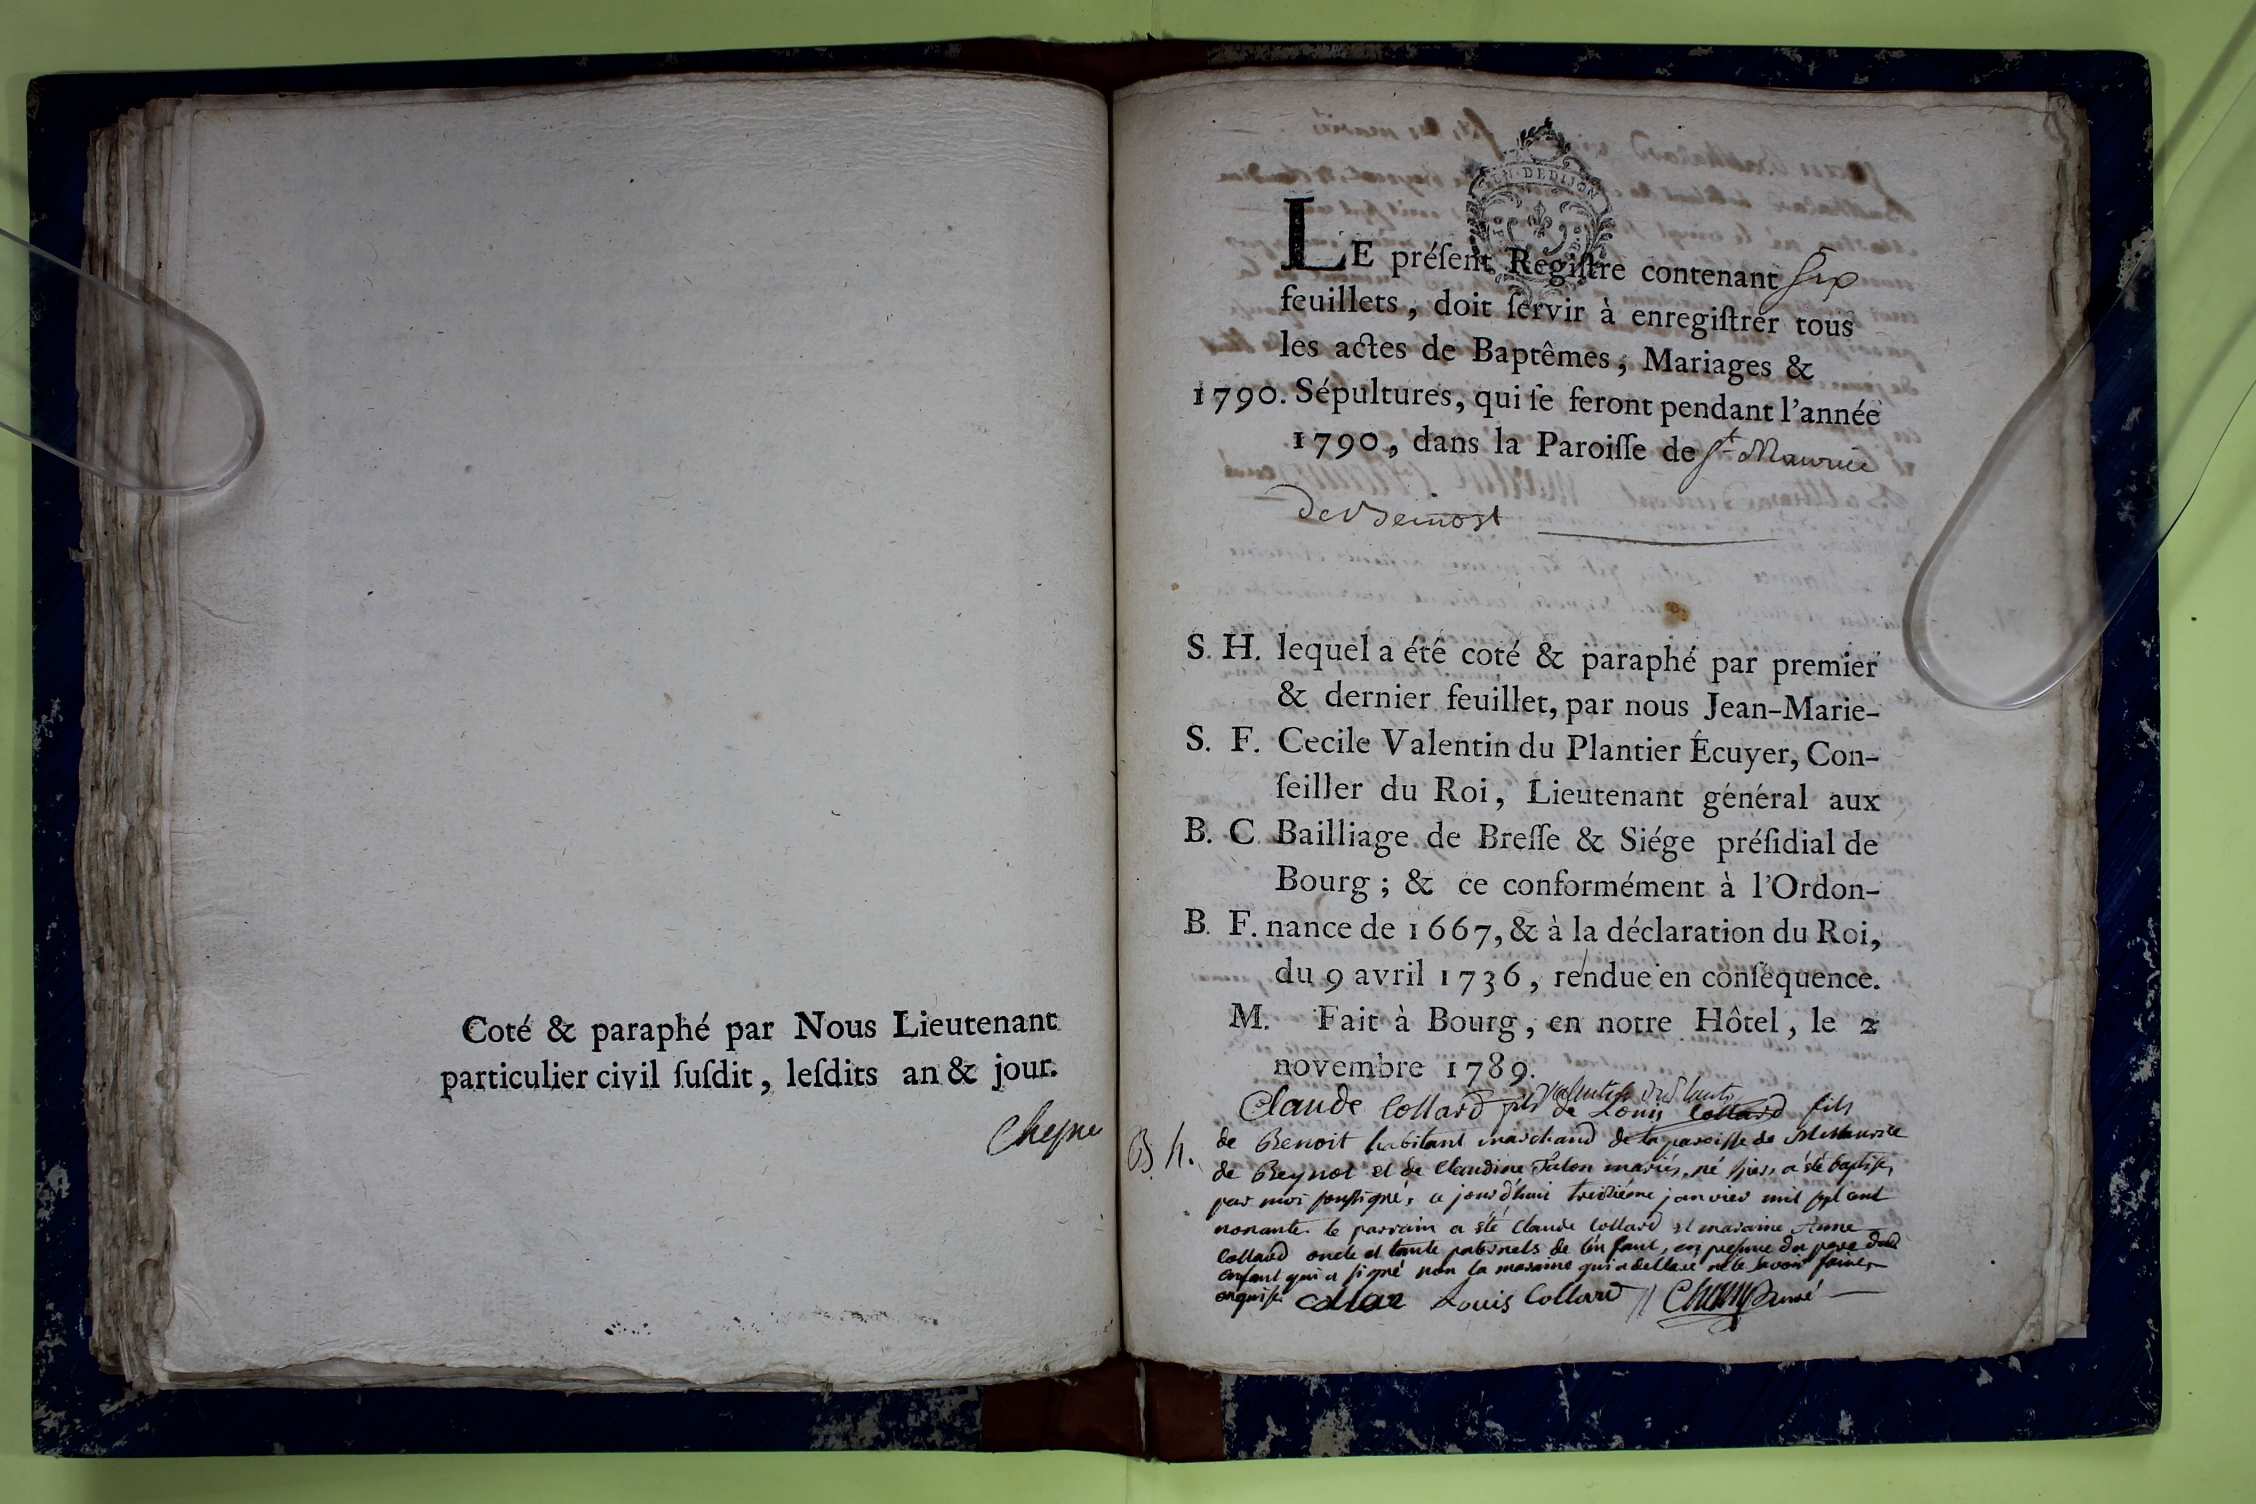 Coté & paraphé par Nous Lieutenant
particulier civil ſuſdit, leſdits an & jour.
GEN. DE DIJON
LE préſent Regiſtre contenant six
feuillets, doit ſervir à enregiſtrer tous
les actes de Baptêmes, Mariages &
1790. Sépultures, qui ſe feront pendant l'année
1790, dans la Paroiſſe de St Maurice
S. H. lequel a été coté & paraphé par premier
& dernier feuillet, par nous Jean-Marie-
S. F. Cecile Valentin du Plantier Écuyer, Con-
ſeiller du Roi, Lieutenant général aux
B. C Bailliage de Breſſe & Siége préſidial de
Bourg ; & ce conformément à l'Ordon-
B. F. nance de 1667, & à la déclaration du Roi,
du 9 avril 1736, rendue en conſéquence.
M. Fait à Bourg, en notre Hôtel, le 2
novembre 1789.
Claude Collard fils de Louis Collard fils
B h. de Benoit habitant marchand de la paroisse de St Maurice
de Beynot et de Claudine mariés, né hier, a été baptisé
par moi soussigné, ce jourd'hui treizième janvier mil sept cent
nonante. le parrain a été Claude Collard et maraine Anne
Collard oncle et tante paternels de l'enfant, en presence du pere dudt
enfant qui a signé non la maraine qui a declaré ne le savoir faire
enquise Collar Louis Collard curé